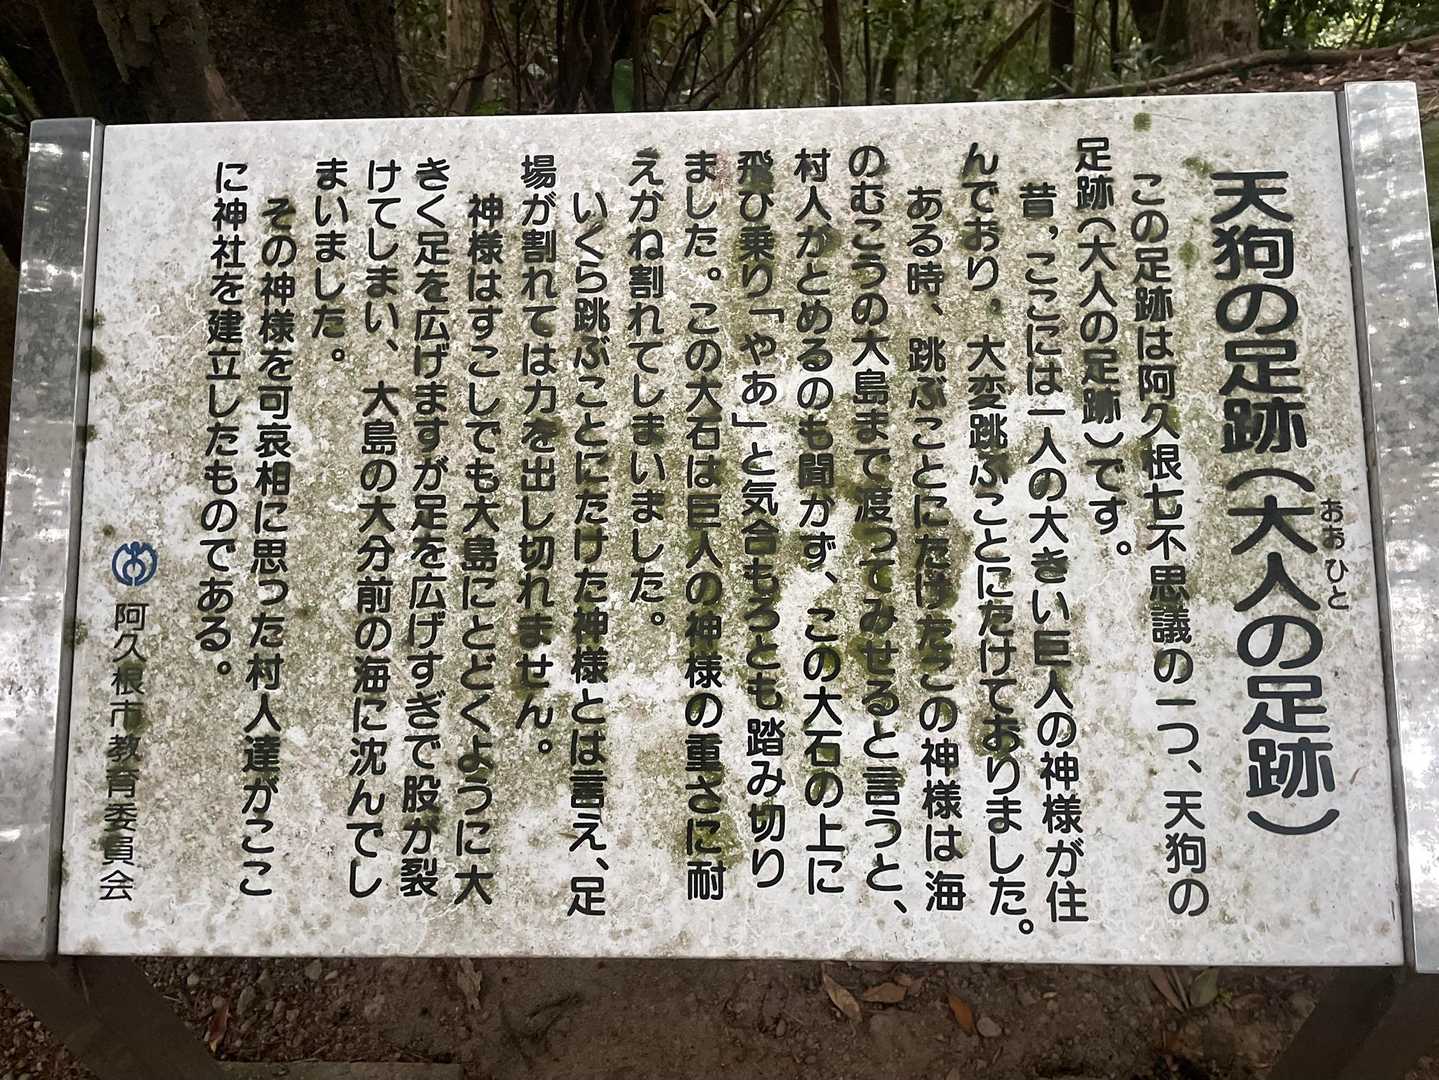 天狗の足跡(大人の足跡)
おおひと
この足跡は阿久根七不思議の一つ、天狗の
足跡(大人の足跡)です。
昔,ここには一人の大きい巨人の神様が住
んでおり,大変跳ぶことにたけておりました。
ある時、跳ぶことにたけたこの神様は海
のむこうの大島まで渡ってみせると言うと、
村人がとめるのも聞かず、この大石の上に
飛び乗り「やあ」と気合もろとも踏み切り
ました。この大石は巨人の神様の重さに耐
えかね割れてしまいました。
いくら跳ぶことにたけた神様とは言え、足
場が割れては力を出し切れません。
神様はすこしでも大島にとどくように大
きく足を広げますが足を広げすぎで股が裂
けてしまい、大島の大分前の海に沈んでし
まいました。
その神様を可哀相に思った村人達がここ
に神社を建立したものである。
阿久根市教育委員会